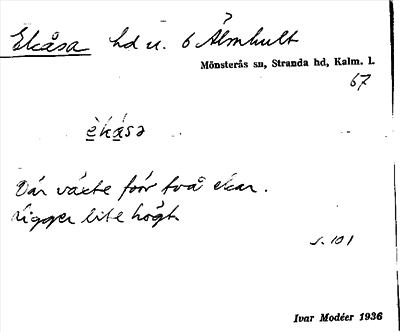 Ekåsa hd u. 6 Älmhult
Mönsterås sn, Stranda hd, Kalm. l.
67
èkása
Där växte förr två ekar.
Ligger lite högt
s. 101
Ivar Modéer 1936